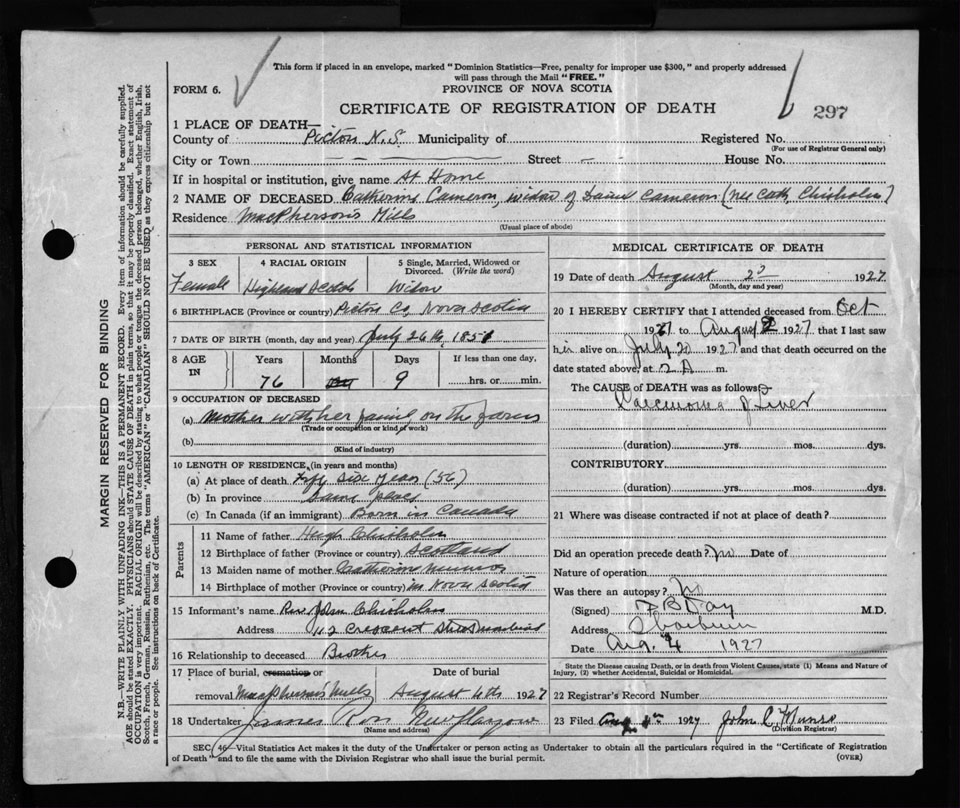 This form if placed in an envelope, marked "Dominion Statistics—Free, penalty for improper use $300," and properly addressed
will pass through the Mail "FREE."
FORM 6.
PROVINCE OF NOVA SCOTIA
CERTIFICATE OF REGISTRATION OF DEATH
297
1 PLACE OF DEATH—
County of Pictou N.S. Municipality of Registered No.
(For use of Registrar General only)
City or Town Street House No.
If in hospital or institution, give name At Home
2 NAME OF DECEASED Catherine Cameron, widow of Cameron (nee Cath, Chisholm)
Residence MacPherson's Mills
(Usual place of abode)
PERSONAL AND STATISTICAL INFORMATION
3 SEX 4 RACIAL ORIGIN 5 Single, Married, Widowed or Divorced. (Write the word)
Female Highland Scotch Widow
6 BIRTHPLACE (Province or country) Pictou Co, Nova Scotia
7 DATE OF BIRTH (month, day and year) July 26th, 1851
8 AGE IN Years Months Days If less than one day,
76 9 hrs. or min.
9 OCCUPATION OF DECEASED
(a) Mother with her family on the farm
(Trade or occupation or kind of work)
(b)
(Kind of industry)
10 LENGTH OF RESIDENCE (in years and months)
(a) At place of death Fifty six years (56)
(b) In province Same place
(c) In Canada (if an immigrant) Born in Canada
Parents
11 Name of father Hugh Chisholm
12 Birthplace of father (Province or country) Scotland
13 Maiden name of mother Catherine Munro
14 Birthplace of mother (Province or country) in Nova Scotia
15 Informant's name Rev John Chisholm
Address 112 Crescent Street Montreal
16 Relationship to deceased Brother
17 Place of burial, cremation or Date of burial
removal MacPherson's Mills August 4th 1927
18 Undertaker James Ross New Glasgow
(Name and address)
MEDICAL CERTIFICATE OF DEATH
19 Date of death August 2 1927
(Month, day and year)
20 I HEREBY CERTIFY that I attended deceased from Oct
19 to August 2 1927 that I last saw
h alive on July 20 1927 and that death occurred on the
date stated above, at 2 A m.
The CAUSE of DEATH was as follows
Carcinoma of Liver
(duration) yrs. mos. dys.
CONTRIBUTORY.
(duration) yrs. mos. dys.
21 Where was disease contracted if not at place of death?
Did an operation precede death? no Date of
Nature of operation
Was there an autopsy? No
(Signed) Day M.D.
Address Thorburn
Date Aug. 4 1927
State the Disease causing Death, or in death from Violent Causes, state (1) Means and Nature of
Injury, (2) whether Accidental, Suicidal or Homicidal.
22 Registrar's Record Number
23 Filed Aug 4th 1927 John C. Munro
(Division Registrar)
SEC. 46—Vital Statistics Act makes it the duty of the Undertaker or person acting as Undertaker to obtain all the particulars required in the "Certificate of Registration
of Death" and to file the same with the Division Registrar who shall issue the burial permit.
(OVER)
MARGIN RESERVED FOR BINDING
N.B.—WRITE PLAINLY WITH UNFADING INK—THIS IS A PERMANENT RECORD. Every item of information should be carefully supplied.
AGE should be stated EXACTLY. PHYSICIANS should STATE CAUSE OF DEATH in plain terms, so that it may be properly classified. Exact statement of
OCCUPATION is very important. RACIAL ORIGIN will be described by stating to what people or tongue the deceased person belonged, whether English, Irish,
Scotch, French, German, Russian, Ruthenian, etc. The terms "AMERICAN" or "CANADIAN" SHOULD NOT BE USED as they express citizenship but not
a race or people. See instructions on back of Certificate.